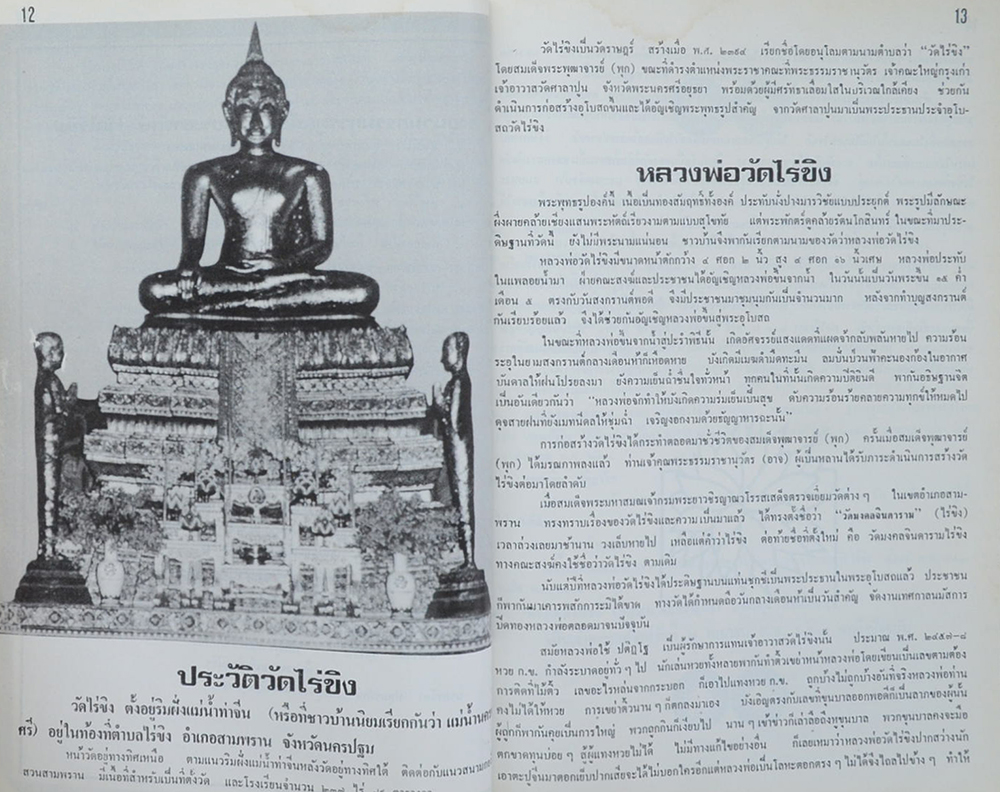 12
ประวัติวัดไร่ขิง
วัดไร่ขิง ตั้งอยู่ริมฝั่งแม่น้ำท่าจีน (หรือที่ชาวบ้านนิยมเรียกกันว่า แม่น้ำนคร
ศรี) อยู่ในท้องที่ตำบลไร่ขิง อำเภอสามพราน จังหวัดนครปฐม
หน้าวัดอยู่ทางทิศเหนือ ตามแนวริมฝั่งแม่น้ำท่าจีนหลังวัดอยู่ทางทิศใต้ ติดต่อกับแนวสนาม
สวนสามพราน มีเนื้อที่สำหรับเป็นที่ตั้งวัด และโรงเรียนจำนวน
13
วัดไร่ขิงเป็นวัดราษฎร์ สร้างเมื่อ พ.ศ. ๒๓๙๔ เรียกชื่อโดยอนุโลมตามนามตำบลว่า “วัดไร่ขิง”
โดยสมเด็จพระพุฒาจารย์ (พุก) ขณะที่ดำรงตำแหน่งพระราชาคณะที่พระธรรมราชานุวัตร เจ้าคณะใหญ่กรุงเก่า
เจ้าอาวาสวัดศาลาปูน จังหวัดพระนครศรีอยุธยา พร้อมด้วยผู้มีศรัทธาเลื่อมใสในบริเวณใกล้เคียง ช่วยกัน
ดำเนินการก่อสร้างอุโบสถขึ้นและได้อัญเชิญพระพุทธรูปสำคัญ จากวัดศาลาปูนมาเป็นพระประธานประจำอุโบ-
สถวัดไร่ขิง
หลวงพ่อวัดไร่ขิง
พระพุทธรูปองค์นี้ เนื้อเป็นทองสัมฤทธิ์ทั้งองค์ ประทับนั่งปางมารวิชัยแบบประยุกต์ พระรูปมีลักษณะ
ผึ่งผายคล้ายเชียงแสนพระหัตถ์เรียวงามตามแบบสุโขทัย แต่พระพักตร์ดูคล้ายรัตนโกสินทร์ ในขณะที่มาประ-
ดิษฐานที่วัดนี้ ยังไม่มีพระนามแน่นอน ชาวบ้านจึงพากันเรียกตามนามของวัดว่าหลวงพ่อวัดไร่ขิง
หลวงพ่อวัดไร่ขิงมีขนาดหน้าตักกว้าง ๔ ศอก ๒ นิ้ว สูง ๔ ศอก ๑๖ นิ้วเศษ หลวงพ่อประทับ
ในแพลอยน้ำมา ฝ่ายคณะสงฆ์และประชาชนได้อัญเชิญหลวงพ่อขึ้นจากน้ำ ในวันนั้นเป็นวันพระขึ้น ๑๕ ค่ำ
เดือน ๕ ตรงกับวันสงกรานต์พอดี จึงมีประชาชนมาชุมนุมกันเป็นจำนวนมาก หลังจากทำบุญสงกรานต์
กันเรียบร้อยแล้ว จึงได้ช่วยกันอัญเชิญหลวงพ่อขึ้นสู่พระอุโบสถ
ในขณะที่หลวงพ่อขึ้นจากน้ำสู่ปะรำพิธีนั้น เกิดอัศจรรย์แสงแดดที่แผดจ้ากลับพลันหายไป ความร้อน
ระอุในยามสงกรานต์กลางเดือนห้าก็เหือดหาย บังเกิดมีเมฆดำมืดทะมึน ลมปั่นป่วนฟ้าคะนองก้องในอากาศ
บันดาลให้ฝนโปรยลงมา ยังความเย็นฉ่ำชื่นใจทั่วหน้า ทุกคนในที่นั้นเกิดความปิติยินดี พากันอธิษฐานจิต
เป็นอันเดียวกันว่า “หลวงพ่อจักทำให้บังเกิดความร่มเย็นเป็นสุข ดับความร้อนร้ายคลายความทุกข์ให้หมดไป
ดุจสายฝนที่ยังเมทนีดลให้ชุ่มฉ่ำ เจริญงอกงามด้วยธัญญาหารฉะนั้น”
การก่อสร้างวัดไร่ขิงได้กระทำตลอดมาชั่วชีวิตของสมเด็จพุฒาจารย์ (พุก) ครั้นเมื่อสมเด็จพุฒาจารย์
(พุก) ได้มรณภาพลงแล้ว ท่านเจ้าคุณพระธรรมราชานุวัตร (อาจ) ผู้เป็นหลานได้รับภาระดำเนินการสร้างวัด
ไร่ขิงต่อมาโดยลำดับ
เมื่อสมเด็จพระมหาสมณเจ้ากรมพระยาวชิรญาณวโรรสเสด็จตรวจเยี่ยมวัดต่าง ๆ ในเขตอำเภอสาม-
พราน ทรงทราบเรื่องของวัดไร่ขิงและความเป็นมาแล้ว ได้ทรงตั้งชื่อว่า “วัดมงคลจินดาราม” (ไร่ขิง)
เวลาล่วงเลยมาช้านาน วงเล็บหายไป เหลือแต่คำว่าไร่ขิง ต่อท้ายชื่อที่ตั้งใหม่ คือ วัดมงคลจินดารามไร่ขิง
ทางคณะสงฆ์คงใช้ชื่อว่าวัดไร่ขิง ตามเดิม
นับแต่ปีที่หลวงพ่อวัดไร่ขิงได้ประดิษฐานบนแท่นชุกชีเป็นพระประธานในพระอุโบสถแล้ว ประชาชน
ก็พากันมาเคารพสักการะมิได้ขาด ทางวัดได้กำหนดถือวันกลางเดือนห้าเป็นวันสำคัญ จัดงานเทศกาลนมัสการ
ปิดทองหลวงพ่อตลอดมาจนปัจจุบัน
สมัยหลวงพ่อใช้ ปติฏโฐ เป็นผู้รักษาการแทนเจ้าอาวาสวัดไร่ขิงนั้น ประมาณ พ.ศ. ๒๔๕๗-๘
หวย ก.ข. กำลังระบาดอยู่ทั่ว ๆ ไป นักเล่นหวยทั้งหลายพากันทำติ้วเขย่าหน้าหลวงพ่อโดยเขียนเป็นเลขตามต้อง
การติดที่ไม้ติ้ว เลขอะไรหล่นจากกระบอก ก็เอาไปแทงหวย ก.ข. ถูกบ้างไม่ถูกบ้างอันที่จริงหลวงพ่อท่าน
คงไม่ได้ให้หวย การเขย่าติ้วนาน ๆ ก็ตกลงมาเอง บังเอิญตรงกับเลขที่ขุนบาลออกพอดีก็เป็นลาภของผู้นั้น
ผู้ถูกก็พากันคุยเป็นการใหญ่ พวกถูกกินก็เงียบไป นาน ๆ เข้าข่าวก็เล่าลือถึงหูขุนบาล พวกขุนบาลคงจะมือ
ตกขาดทุนบ่อย ๆ สู้ผู้แทงหวยไม่ได้ ไม่มีทางแก้ไขอย่างอื่น ก็เลยเหมาว่าหลวงพ่อวัดไร่ขิงปากสว่างนัก
เอาตะปูจีนมาตอกเย็บปากเสียจะได้ไม่บอกใครอีกแต่หลวงพ่อเป็นโลหะตอกตรง ๆ ไม่ได้จึงไถลไปข้าง ๆ ทำให้